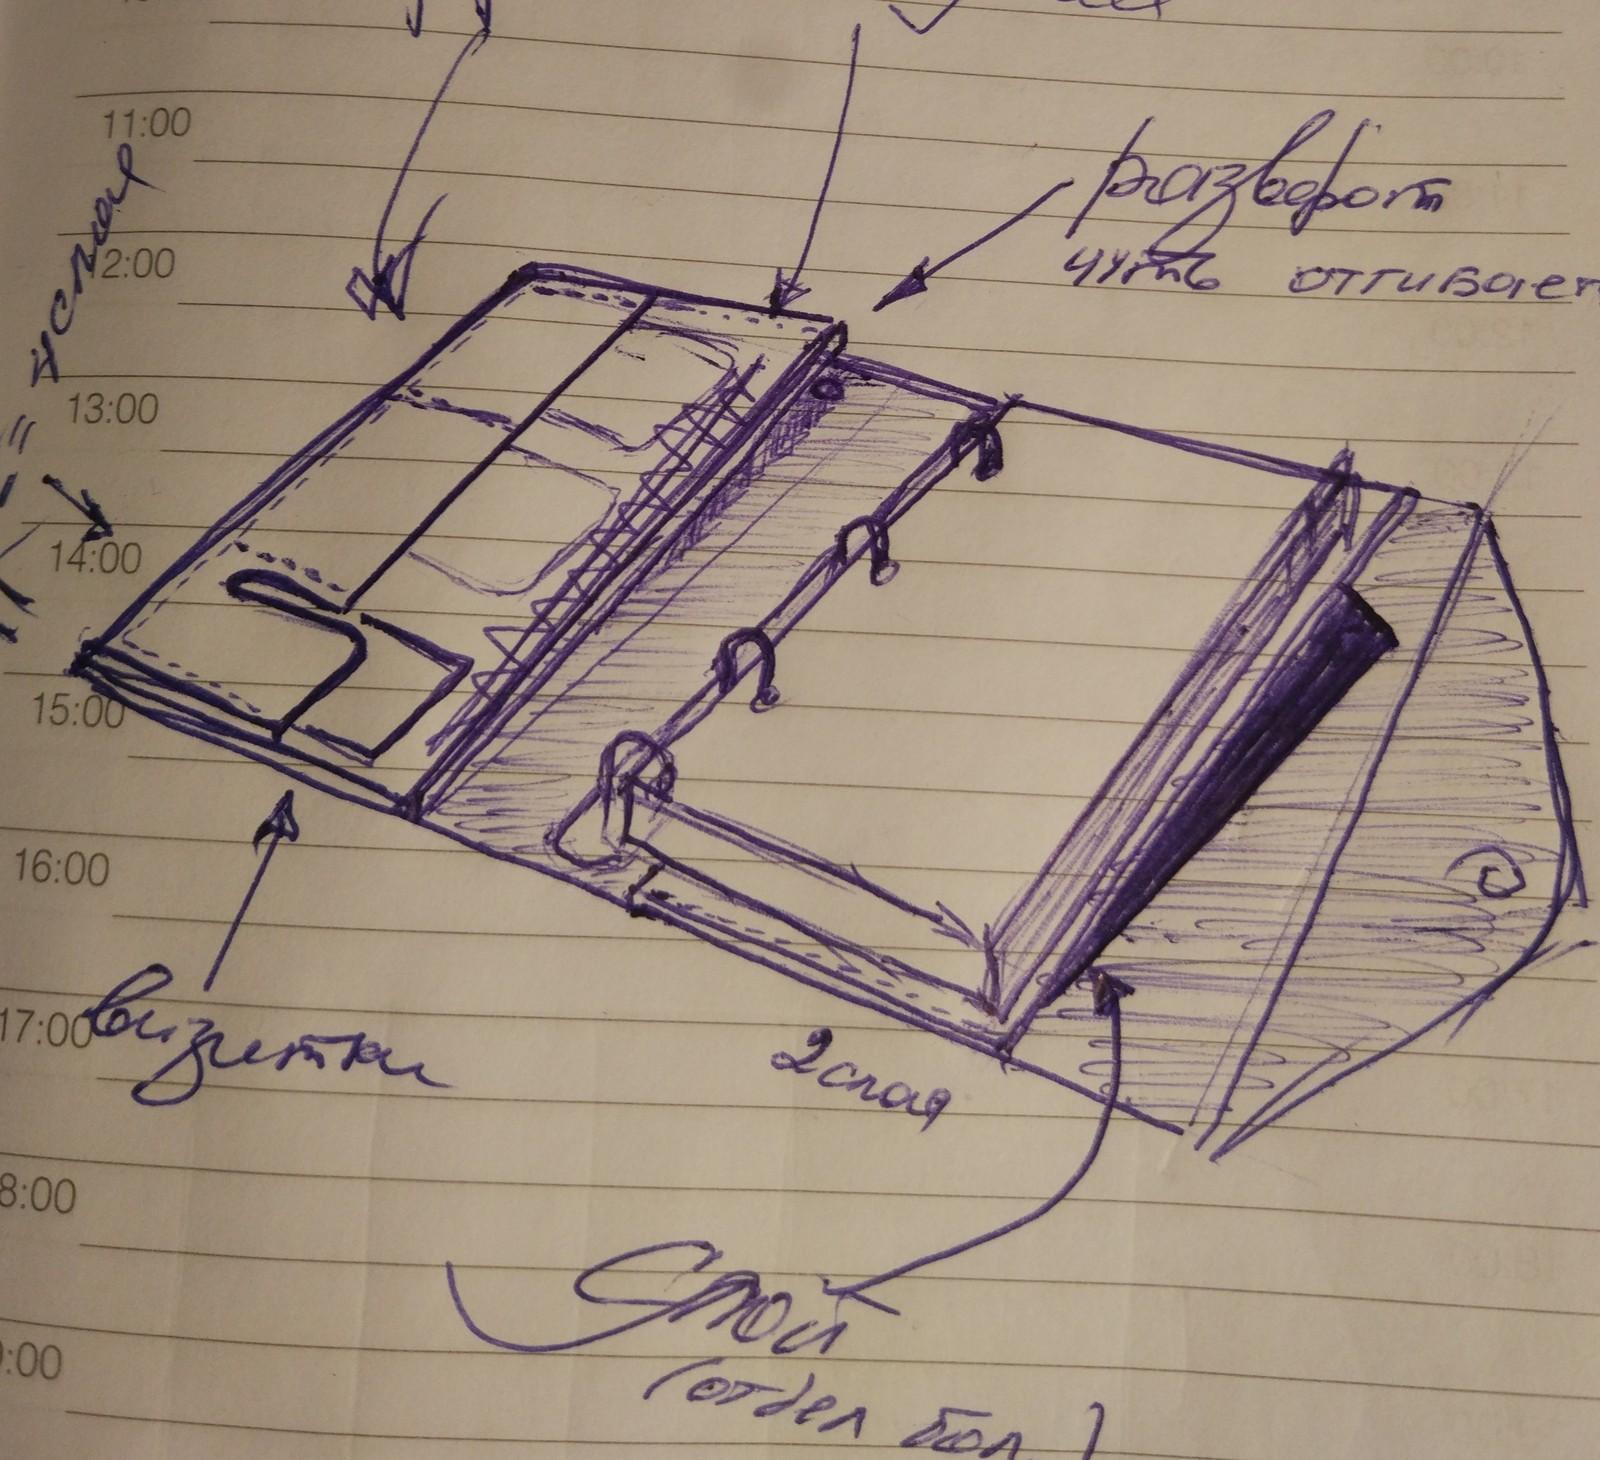 11:00
разворот
чуть отгибает
12:00
13:00
14:00
15:00
16:00
17:00
визитки
2 слоя
8:00
Слой
:00
(отдел бол.)